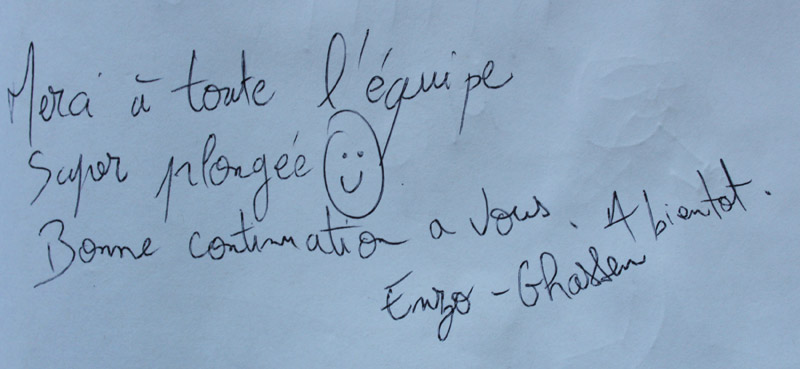 Merci à toute l'équipe
Super plongée
Bonne continuation a vous. A bientot.
Enzo - Ghassen